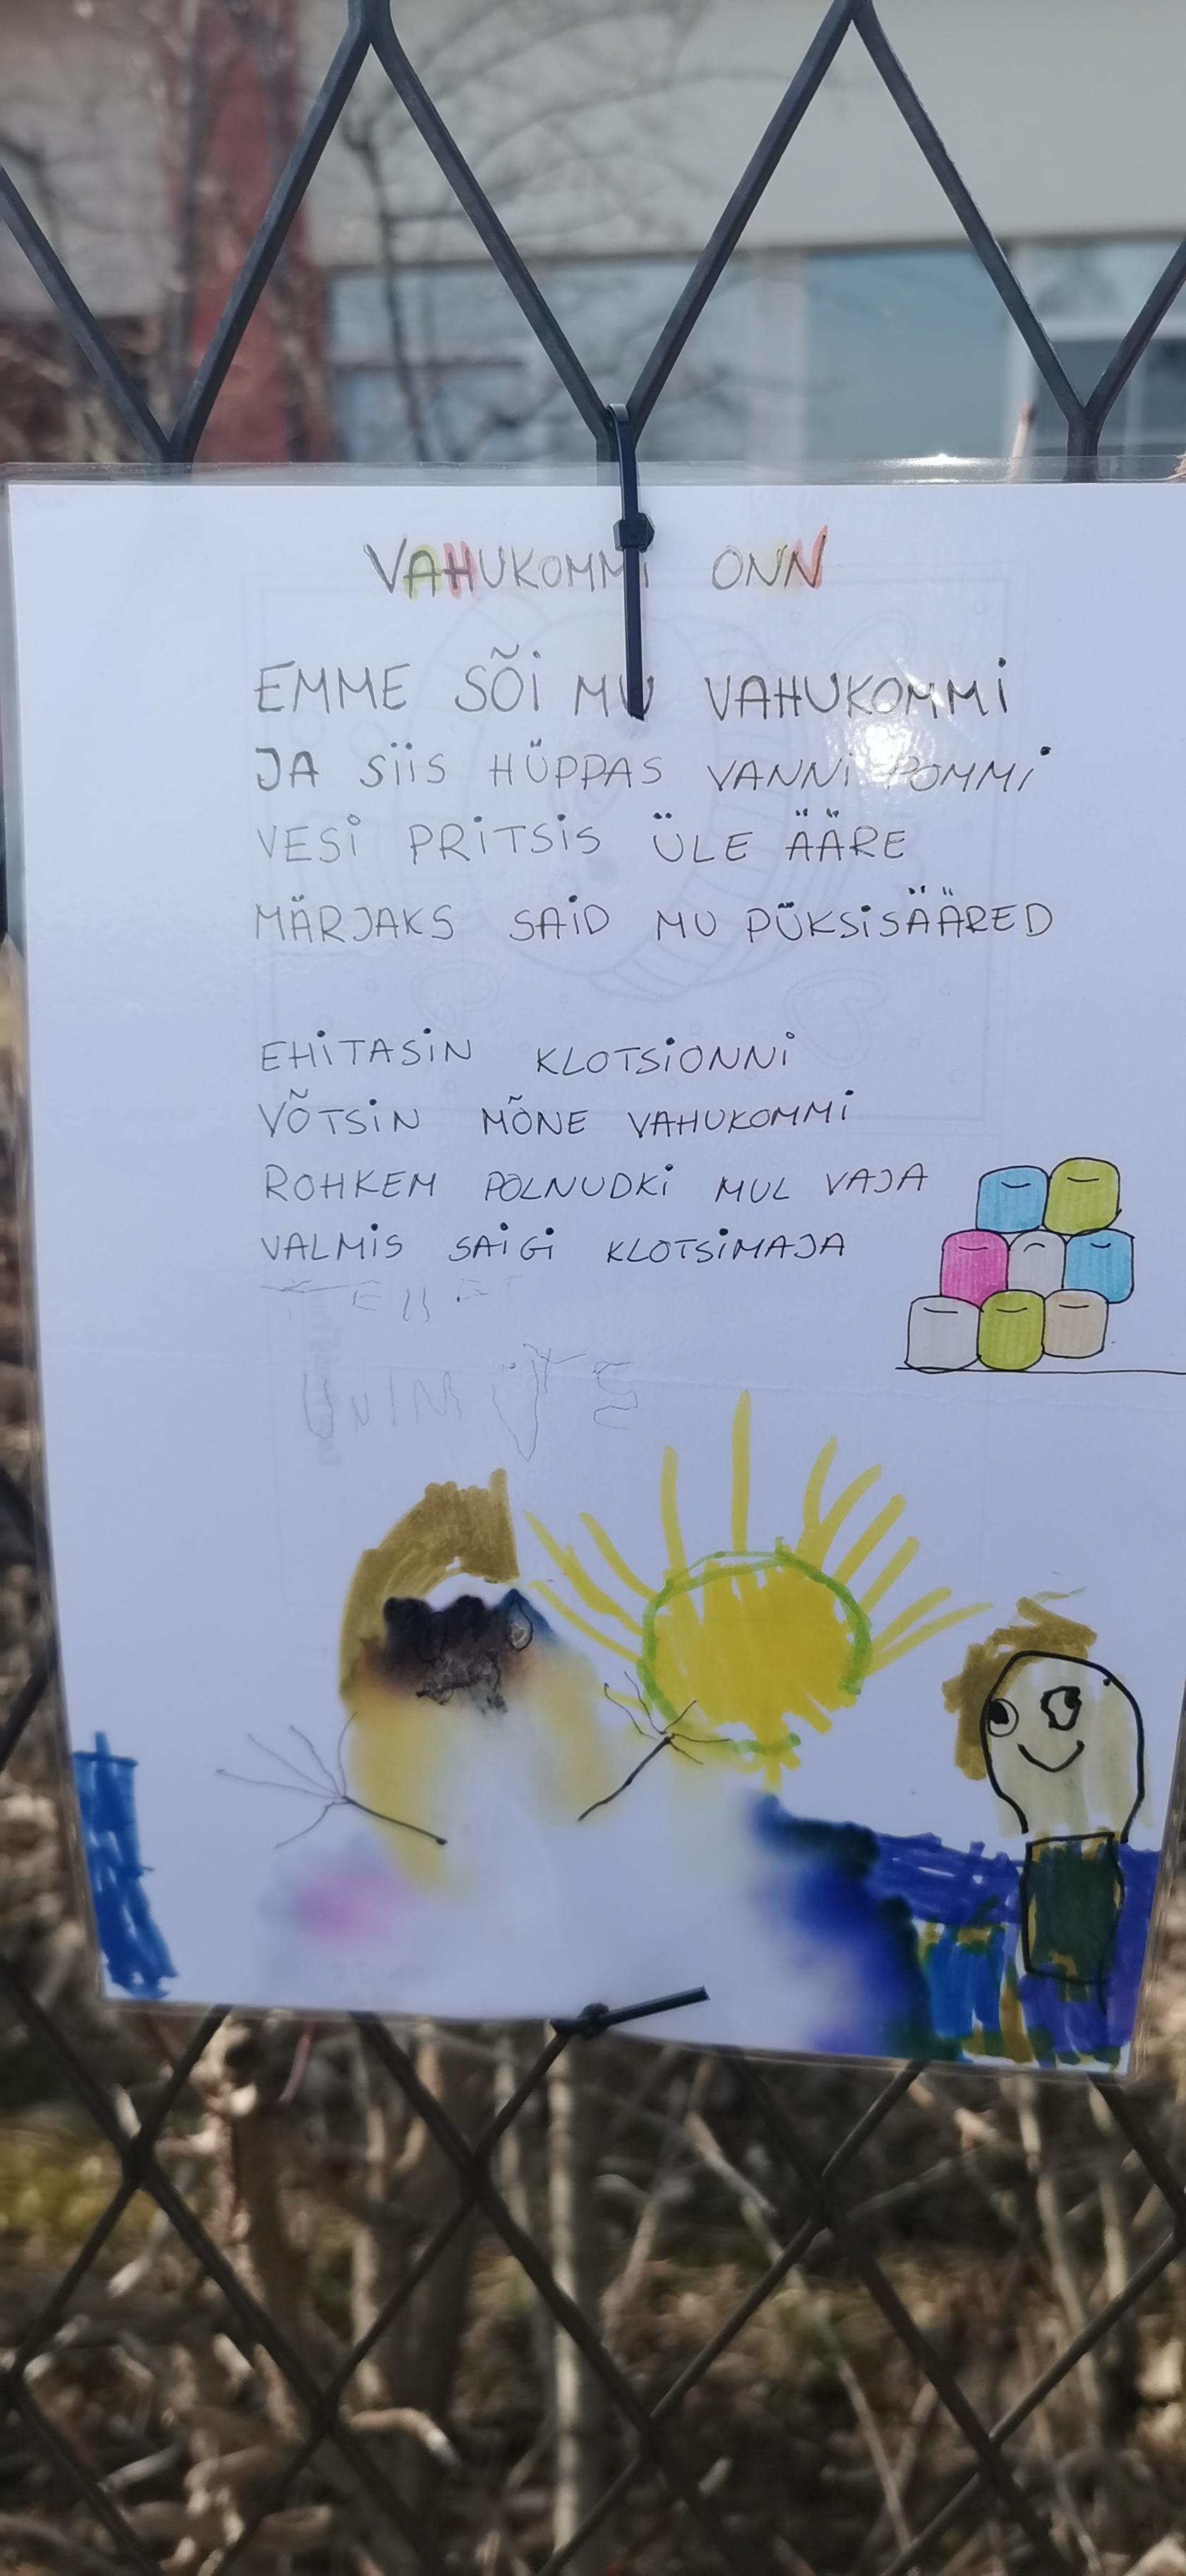 VAHUKOMMI ONN
EMME SÕI MU VAHUKOMMI
JA SIIS HÜPPAS VANNI POMMI
VESI PRITSIS ÜLE ÄÄRE
MÄRJAKS SAID MU PÜKSISÄÄRED
EHITASIN KLOTSIONNI
VÕTSIN MÕNE VAHUKOMMI
ROHKEM POLNUDKI MUL VAJA
VALMIS SAIGI KLOTSIMAJA